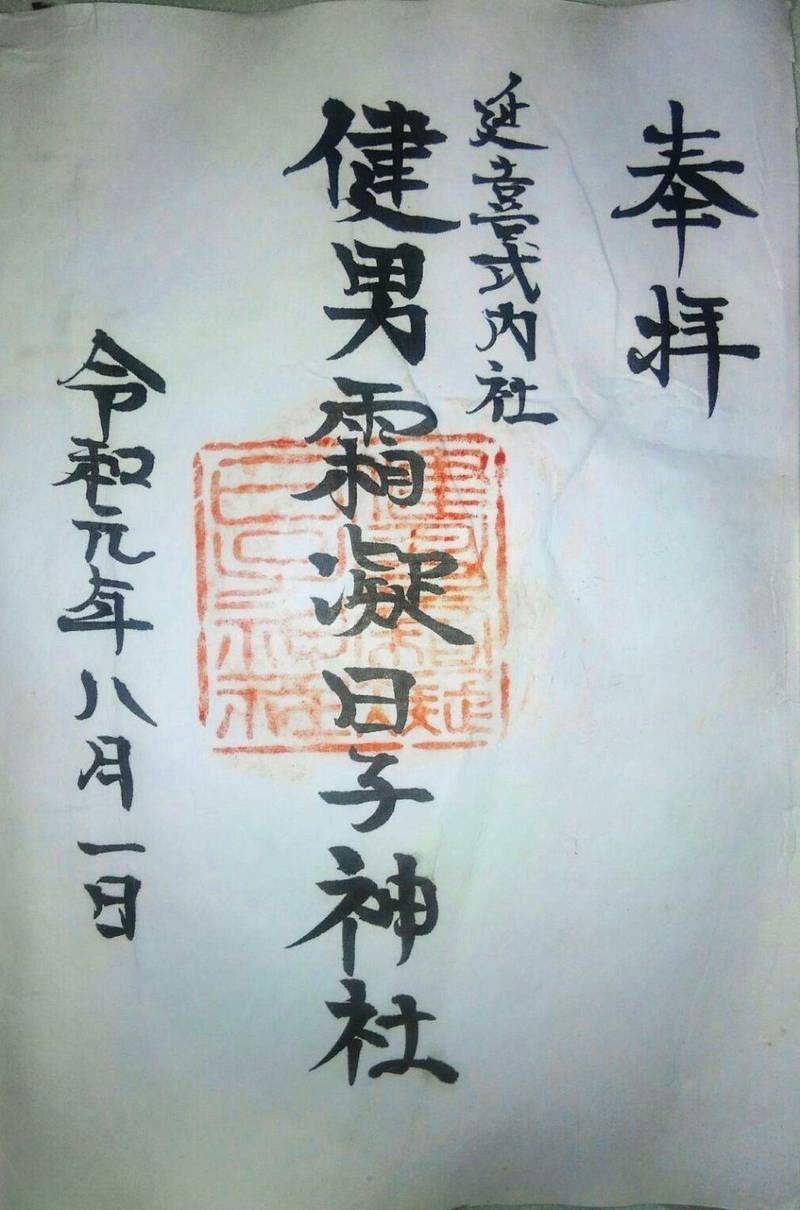 奉拝
延喜式内社
健男霜凝日子神社
令和元年八月一日